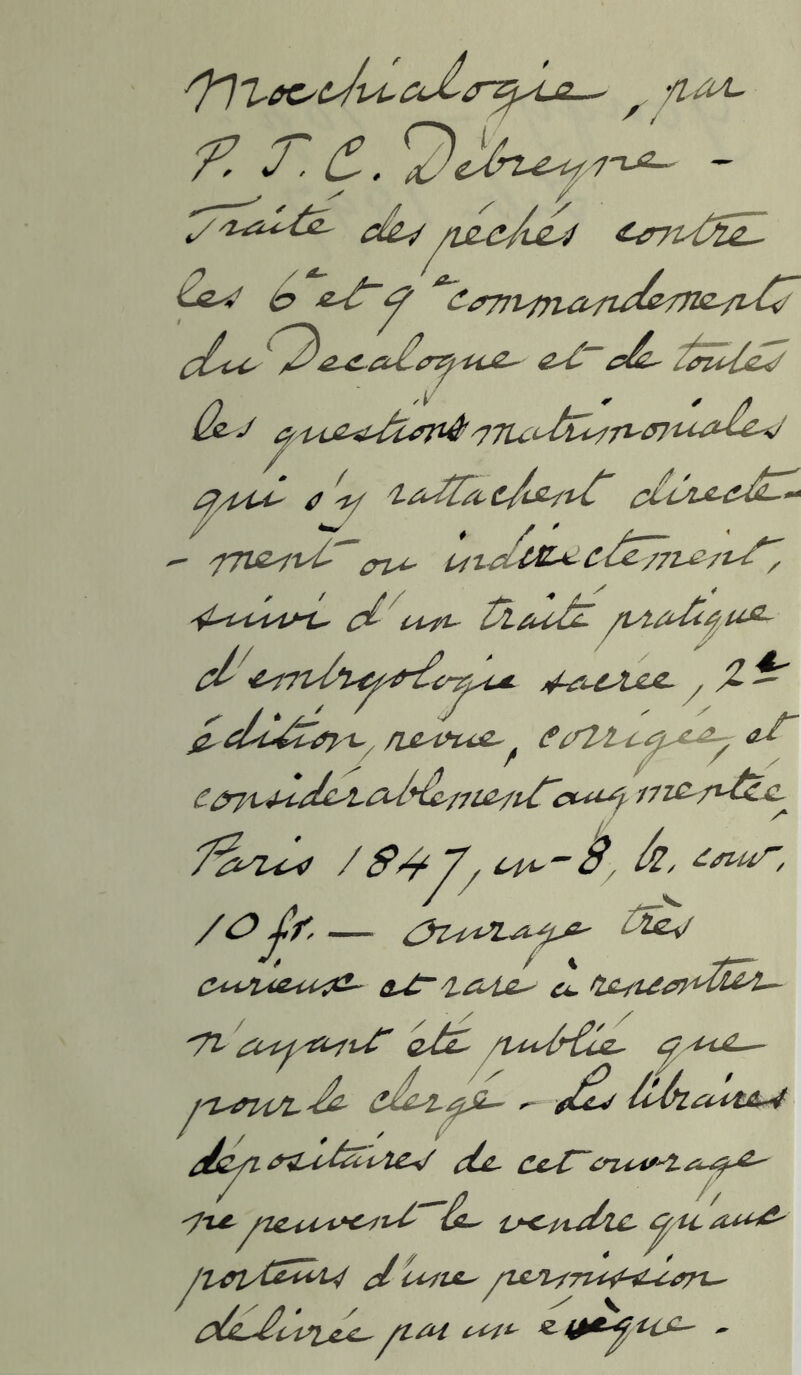 Mœchialogie, par
P. J. C. Debreyne -
Traité des péchés contre
les 6e et 9e commandements
du Decalogue et de toutes
les questions matrimoniales
qui s'y rattachent directe-
- ment ou indirectement,
suivi d'un traité pratique
d'embryologie sacrée, 2e
édition, revue, corrigée, et
considérablement augmentée
Paris 1847, in-8, br. couv.,
10 fr. — Ouvrage très
curieux et rare à rencontrer
n'ayant été publié que
pour le clergé - Les libraires
dépositaires de cet ouvrage
ne peuvent le vendre qu'aux
porteurs d'une permission
délivrée par un évèque -